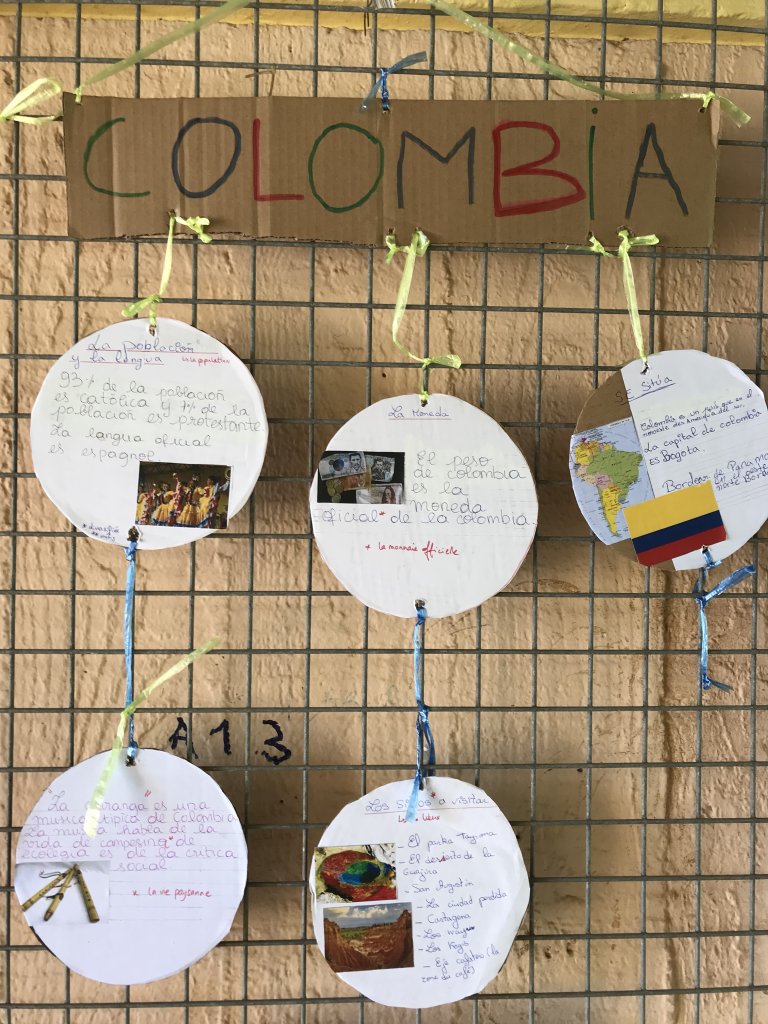 COLOMBiA
La población
y la langua
la population
93% de la población
es católica y 7% de la
población es protestante.
La langua oficial
es espagnol
La Moneda
El peso
de colombia
es la
moneda
oficial* de la colombia.
* la monnaie officielle
SE Sitúa
Colombia es un país que en el
America del sur.
La capital de colombia
es Bogota.
Bordeau de Panama
A13
"La es una
musica tipica de Colombia
La musica habla de la
vida de campesino* de
ecologia es de la critica
social
* la vie paysanne
Los Sitios* a visitar
Les lieux
- El parka Tayrona
- El desierto de la
Guajira
- San Agustin
- La ciudad perdida
- Cartagena
- Los
- Los Kogis
- Eje cafetero (la
zone du café)